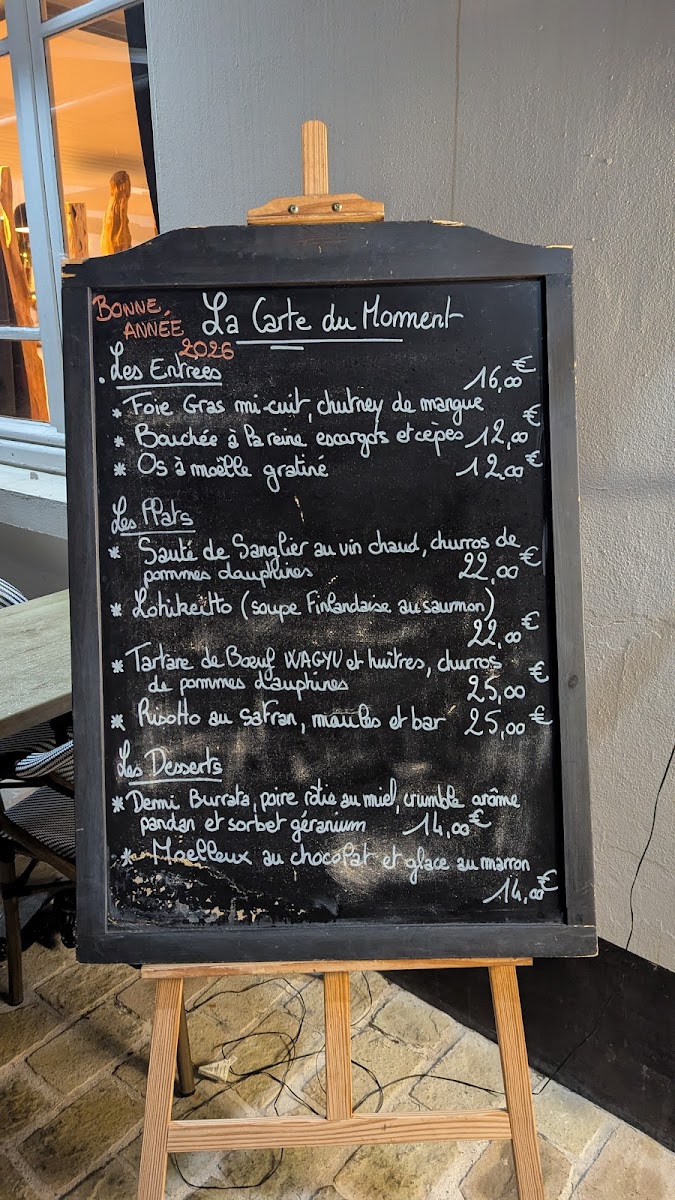 BONNE ANNÉE 2026
La Carte du Moment
Les Entrees
* Foie Gras mi-cuit, chutney de mangue 16,00€
* Bouchée à la reine escargots et cèpes 12,00€
* Os à moëlle gratiné 12,00€
Les Plats
* Sauté de Sanglier au vin chaud, churros de
pommes dauphines 22,00€
* Lohikeitto (soupe Finlandaise au saumon)
22,00€
* Tartare de Bœuf WAGYU et huîtres, churros
de pommes dauphines 25,00€
* Risotto au safran, moules et bar 25,00€
Les Desserts
* Demi Burrata, poire rôtie au miel, crumble arôme
pandan et sorbet géranium 14,00€
* Moelleux au chocolat et glace au marron
14,00€